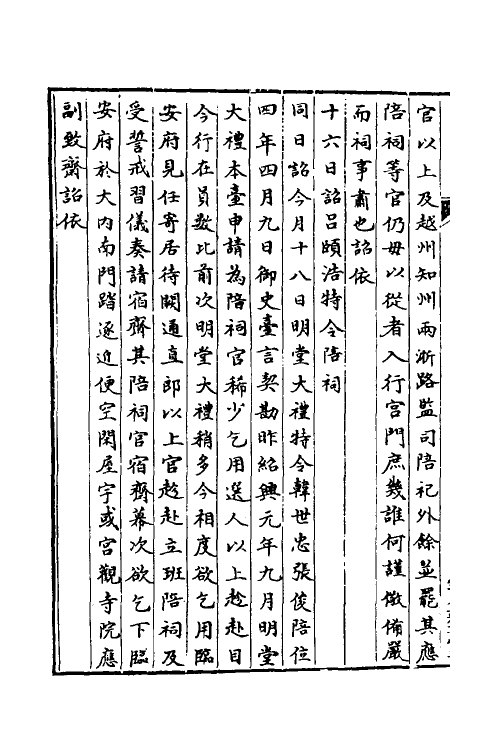 官以上及越州知州兩淅路監司陪祀外餘並罷其應
陪祠等官仍毋以從者入行宮門庶幾誰何謹儆備嚴
而祠事肅也詔依
十六日詔呂頤浩特令陪祠
同日詔今月十八日明堂大禮特令韓世忠張俊陪位
四年四月九日御史臺言契勘昨紹興元年九月明堂
大禮本臺申請為陪祠官稀少乞用選人以上趁赴目
今行在員數比前次明堂大禮稍多今相度欲乞用臨
安府見任寄居待闕通直郎以上官趁赴立班陪祠及
受誓戒習儀奏請宿齋其陪祠官宿齋幕次欲乞下臨
安府於大內南門踏逐近便空閑屋宇或宮觀寺院應
副致齋詔依